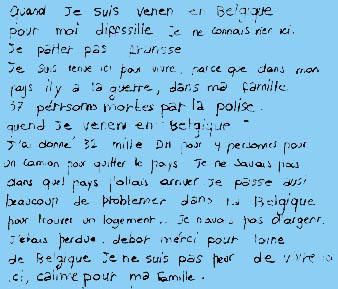 Quand Je suis venen en Belgique
pour moi dipessille Je ne connais rien ici.
Je parler pas frunsse
Je suis venue ici pour vivre, parce que dans mon
pays il y a la guerre, dans ma famille
37 perrsoms mortes par la polise.
quend Je venen en Belgique
J'ai donné 32 mille DM pour 4 personnes pour
un camion pour quitter le pays. Je ne savais pas
dans quel pays j'allais arriver Je passe ausi
beaucoup de problemer dans la Belgique
pour trouver un logement.. Je navais pas d'argent.
J'étais perdue. debor mérci pour
de Belgique Je ne suis pas peur de vivre
ici, calme pour ma famille.